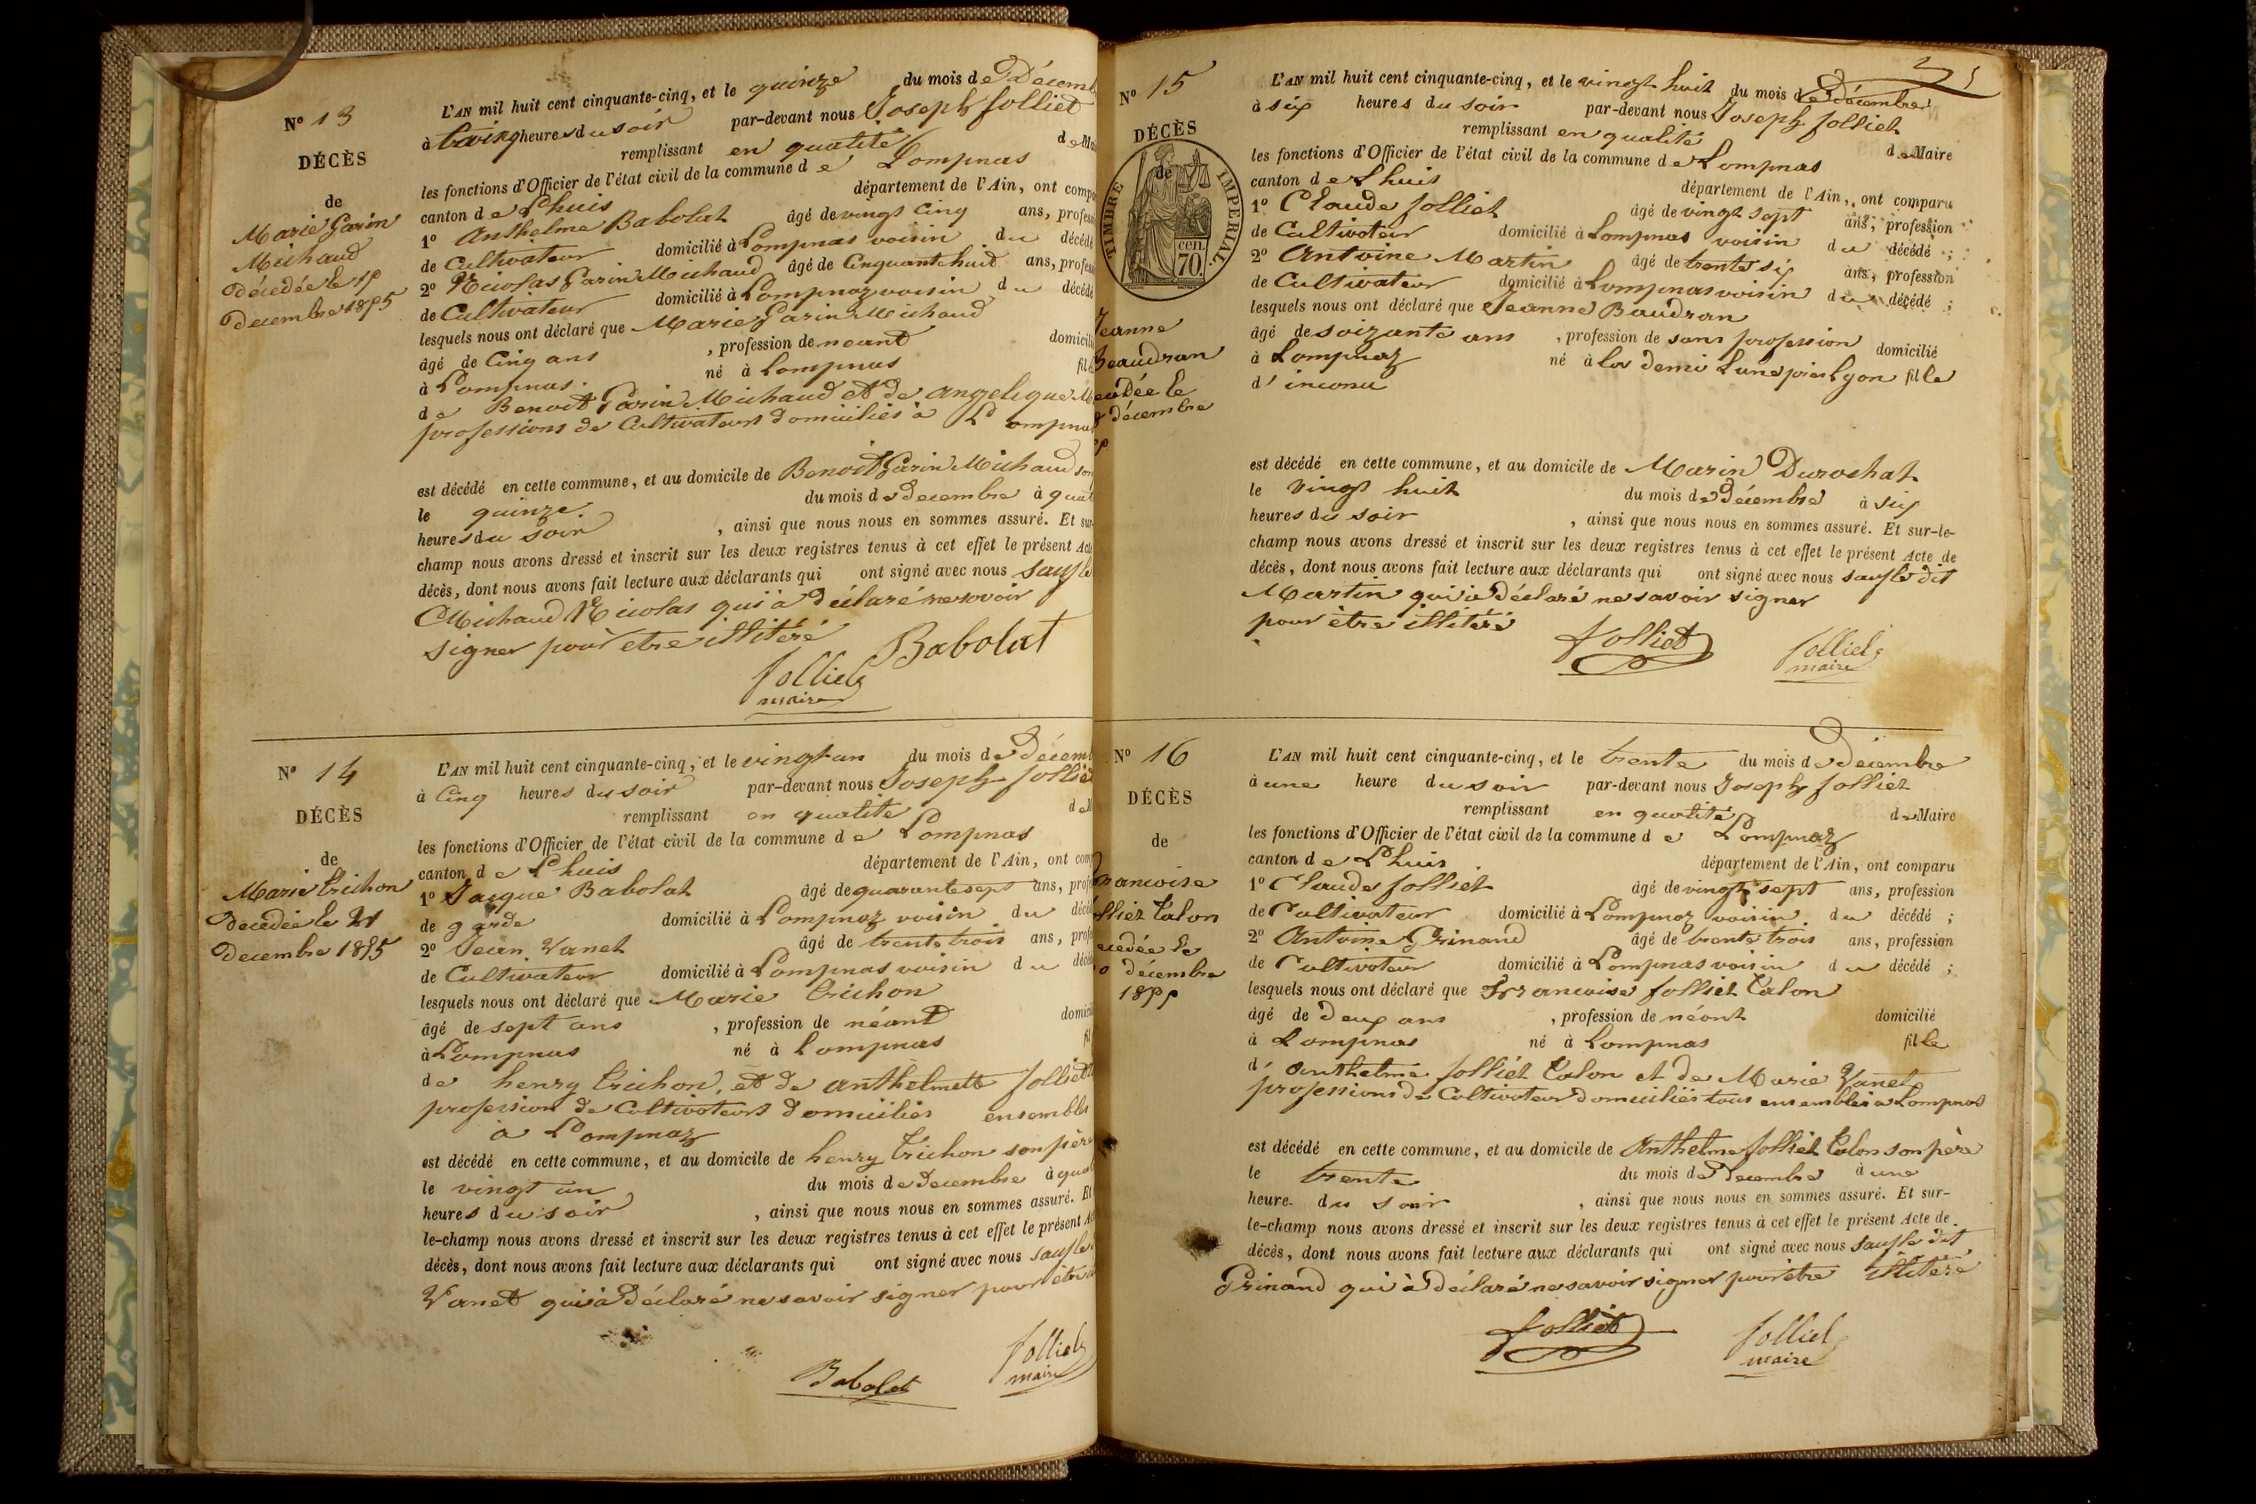 N° 13
DÉCÈS
de
Marie Garin
Michaud
décédée le 15
decembre 1855
L'AN mil huit cent cinquante-cinq, et le quinze du mois de Décemb
à heures du soir par-devant nous Joseph Jolliet
remplissant en qualité de Ma
les fonctions d'Officier de l'état civil de la commune de Lompnas
canton de Lhuis département de l'Ain, ont compa
1° Anthelme Babolat âgé de vingt cinq ans, profess
de Cultivateur domicilié à Lompnas voisin du décédé
2° Nicolas Garin Michaud âgé de Cinquante huit ans, profess
de Cultivateur domicilié à Lompnaz voisin du décédé
lesquels nous ont déclaré que Marie Garin Michaud
âgé de Cinq ans , profession de neant domicilié
à Lompnas né à Lompnas fil
de Benoit Garin Michaud et de angelique M
professions de Cultivateurs domiciliés à Lompnas
est décédé en cette commune, et au domicile de Benoit Garin Michaud son
le quinze du mois de decembre à quat
heures du soir , ainsi que nous nous en sommes assuré. Et sur
champ nous avons dressé et inscrit sur les deux registres tenus à cet effet le présent Acte
décès, dont nous avons fait lecture aux déclarants qui ont signé avec nous sauf le
Michaud Nicolas qui à déclaré ne savoir
signer pour être illitéré
Babolat
Jolliet
maire
N° 14
DÉCÈS
de
Marie Trichon
Décédée le 21
Decembre 1855
L'AN mil huit cent cinquante-cinq, et le vingt un du mois de Décemb
à Cinq heures du soir par-devant nous Joseph Jolliet
remplissant en qualité de M
les fonctions d'Officier de l'état civil de la commune de Lompnas
canton de Lhuis département de l'Ain, ont comp
1° Jacque Babolat âgé de quarante sept ans, profe
de garde domicilié à Lompnaz voisin du décéd
2° Jean Vanet âgé de trente trois ans, profe
de Cultivateur domicilié à Lompnas voisin du décéd
lesquels nous ont déclaré que Marie Trichon
âgé de sept ans , profession de néant domicil
à Lompnas né à Lompnas fil
de henry Trichon et de anthelmette Jolliet
profession de Cultivateurs domiciliés ensembles
à Lompnaz
est décédé en cette commune, et au domicile de henry Trichon son père
le vingt un du mois de Decembre à quat
heures du soir , ainsi que nous nous en sommes assuré. Et
le-champ nous avons dressé et inscrit sur les deux registres tenus à cet effet le présent Ac
décès, dont nous avons fait lecture aux déclarants qui ont signé avec nous sauf le
Vanet qui à déclaré ne savoir signer pour être
Babolat
Jolliet
maire
N° 15
DÉCÈS
de
TIMBRE IMPERIAL
70 cen.
Jeanne
Beaudran
cédée le
8 décembre
L'AN mil huit cent cinquante-cinq, et le vingt huit du mois de décembre
à six heures du soir par-devant nous Joseph Jolliet
remplissant en qualité de Maire
les fonctions d'Officier de l'état civil de la commune de Lompnas
canton de Lhuis département de l'Ain, ont comparu
1° Claude Jolliet âgé de vingt sept ans, profession
de Cultivateur domicilié à Lompnas voisin du décédé ;
2° Antoine Martin âgé de trente six ans, profession
de Cultivateur domicilié à Lompnas voisin du décédé ;
lesquels nous ont déclaré que Jeanne Baudran
âgé de soizante ans , profession de sans profession domicilié
à Lompnaz né à la demi Lune près Lyon fille
d'inconu
est décédé en cette commune, et au domicile de Marin Durochat
le Vingt huit du mois de Décembre à six
heures du soir , ainsi que nous nous en sommes assuré. Et sur-le-
champ nous avons dressé et inscrit sur les deux registres tenus à cet effet le présent Acte de
décès, dont nous avons fait lecture aux déclarants qui ont signé avec nous sauf le dit
Martin qui à déclaré ne savoir signer
pour être illitéré
Jolliet
Jolliet
maire
N° 16
DÉCÈS
de
rancoise
lliet Talon
écédée le
décembre
1855
L'AN mil huit cent cinquante-cinq, et le trente du mois de décembre
à une heure du soir par-devant nous Joseph Jolliet
remplissant en qualité de Maire
les fonctions d'Officier de l'état civil de la commune de Lompnaz
canton de Lhuis département de l'Ain, ont comparu
1° Claude Jolliet âgé de vingt sept ans, profession
de Cultivateur domicilié à Lompnaz voisin du décédé ;
2° Antoine Prinand âgé de trente trois ans, profession
de Cultivateur domicilié à Lompnas voisin du décédé ;
lesquels nous ont déclaré que Francoise Jolliet Talon
âgé de deux ans , profession de néant domicilié
à Lompnas né à Lompnas fille
d'Anthelme Jolliet Talon et de Marie Vanet
professions de Cultivateur domiciliés tous ensembles à Lompnas
est décédé en cette commune, et au domicile de Anthelme Jolliet Talon son père
le trente du mois de Decembre à une
heure du soir , ainsi que nous nous en sommes assuré. Et sur-
le-champ nous avons dressé et inscrit sur les deux registres tenus à cet effet le présent Acte de
décès, dont nous avons fait lecture aux déclarants qui ont signé avec nous sauf le dit
Prinand qui à déclaré ne savoir signer pour être illitéré
Jolliet
Jolliet
maire